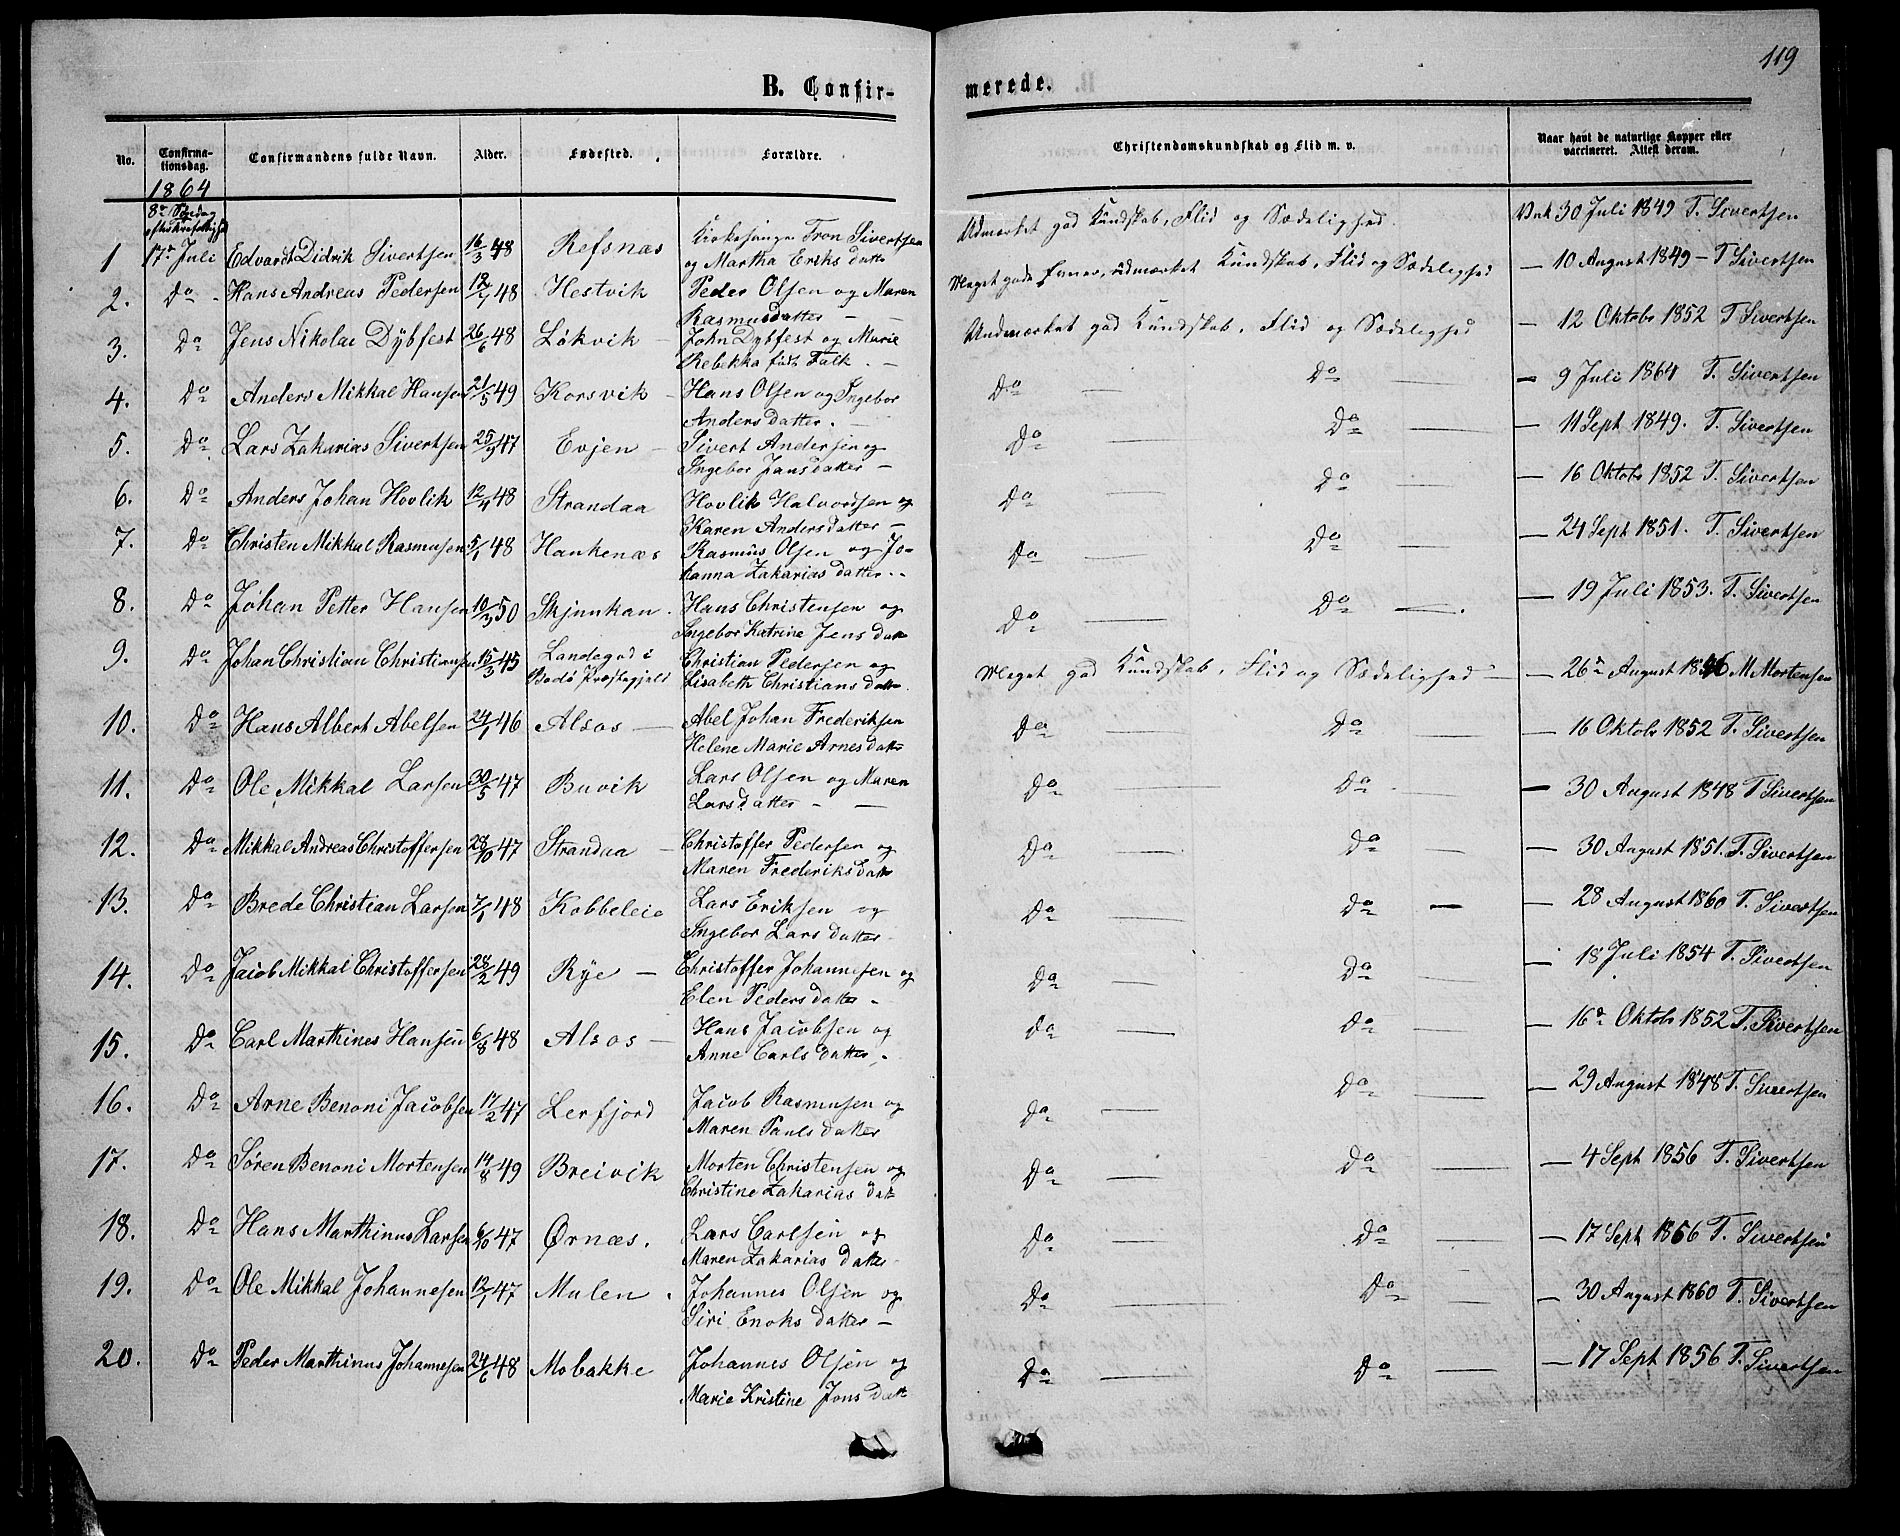 119
B. Confirmerede.
No. Confirmationsdag. Confirmandens fulde Navn. Alder. Fødested. Forældre. Christendomskundskab og Flid m. v. Naar havt de naturlige Kopper eller vaccineret. Attest derom.
1864
8de Søndag
1 17de Juli Edvardt Didrik Sivertsen 16/3 48 Refsnæs Kirkesanger Tron Sivertsen og Martha Eriks datter Udmærket god Kundskab, Flid og Sædelighed. Vak 30 Juli 1849 T. Sivertsen
2. Do Hans Andreas Pedersen 12/1 48 Hestvik Peder Olsen og Maren Rasmusdatter — Meget gode Evner, udmærket Kundskab, Flid og Sædelighed — 10 August 1849 — T Sivertsen
3. Do Jens Nikolai Dybfest 26/6 48 Løkvik — John Dybfest og Marie Rebekka født Falk. — Undmærket god Kundskab, Flid og Sædelighed — 12 Oktobr 1852 T Sivertsen
4. Do Anders Mikkal Hansen 21/5 49 Korsvik — Hans Olsen og Ingebor Anders datter. — Do — Do — — 9 Juli 1864 T. Sivertsen
5. Do Lars Zakarias Sivertsen 25/9 47 Evjen — Sivert Andersen og Ingebor Jansdatter — Do — Do — — 11 Sept 1849. T. Sivertsen
6. Do Anders Johan Hovlik 12/4 48 Strandaa Hovlik Halvordsen og Karen Andersdatter — Do — Do — — 16 Oktobr 1852 T. Sivertsen
7. Do Christen Mikkal Rasmusen 5/1 48 Hankenæs Rasmus Olsen og Johanna Zakarias datter.. Do — Do — — 24 Sept 1851. T. Sivertsen
8. Do Johan Petter Hansen 10/9 50 Skjunkan. Hans Christensen og Ingebor Katrine Jens datt Do — Do —. — 19 Juli 1853. T. Sivertsen
9. Do Johan Christian Christiansen 15/3 45 Landegod i Bodø Præstegjeld Christian Pedersen og Lisabeth Christians datt. Meget god Kundskab, Flid og Sædelighed — — 26de August M Mortensen
10. Do Hans Albert Abelsen 24/1 46 Alsos — Abel Johan Frederiksen Helene Marie Arnes datt Do — Do — — 16 Oktobr 1852 T. Sivertsen
11. Do Ole Mikkal Larsen 30/5 47 Buvik Lars Olsen og Maren Larsdatter — — Do — Do — — 30 August 1848 T Sivertsen
12. Do Mikkal Andreas Christoffersen 28/10 47 Strandaa — Christoffer Pedersen og Maren Frederiks datt Do — Do — — 30 August 1851. T. Sivertsen
13. Do Brede Christian Larsen 7/1 48 Kobbeleie Lars Eriksen og Ingebor Lars datter Do — Do — — 28 August 1860 T. Sivertsen
14. Do Jacob Mikkal Christoffersen 28/2 49 Rye — Christoffer Johannesen og Elen Peders datter. Do — Do — — 18 Juli 1854 T. Sivertsen
15. Do Carl Marthines Hansen 6/8 48 Alsos — Hans Jacobsen og Anne Carls datter. Do — Do — — 16de Oktobr 1852 T. Sivertsen
16. Do Arne Benoni Jacobsen 17/2 47 Lerfjord Jacob Rasmusen og Maren Pauls datter Do — Do — — 29 August 1848 T. Sivertsen
17. Do Søren Benoni Mortensen 14/8 49 Breivik Morten Christensen og Christine Zakarias datt Do — Do — — 4 Sept 1856 T. Sivertsen
18. Do Hans Marthinus Larsen 6/10 47 Ørnæs. Lars Carlsen og Maren Zakarias datter Do — Do — — 17 Sept 1856 T. Sivertsen
19. Do Ole Mikkal Johannesen 12/1 47 Mulen. Johannes Olsen og Siri Enoks datter — Do — Do — — 30 August 1860 T. Sivertsen
20. Do Peder Marthinus Johannesen 24/6 48 Mobakke Johannes Olsen og Marie Kristine Jons datt Do — Do — — 17 Sept 1856 T. Sivertsen